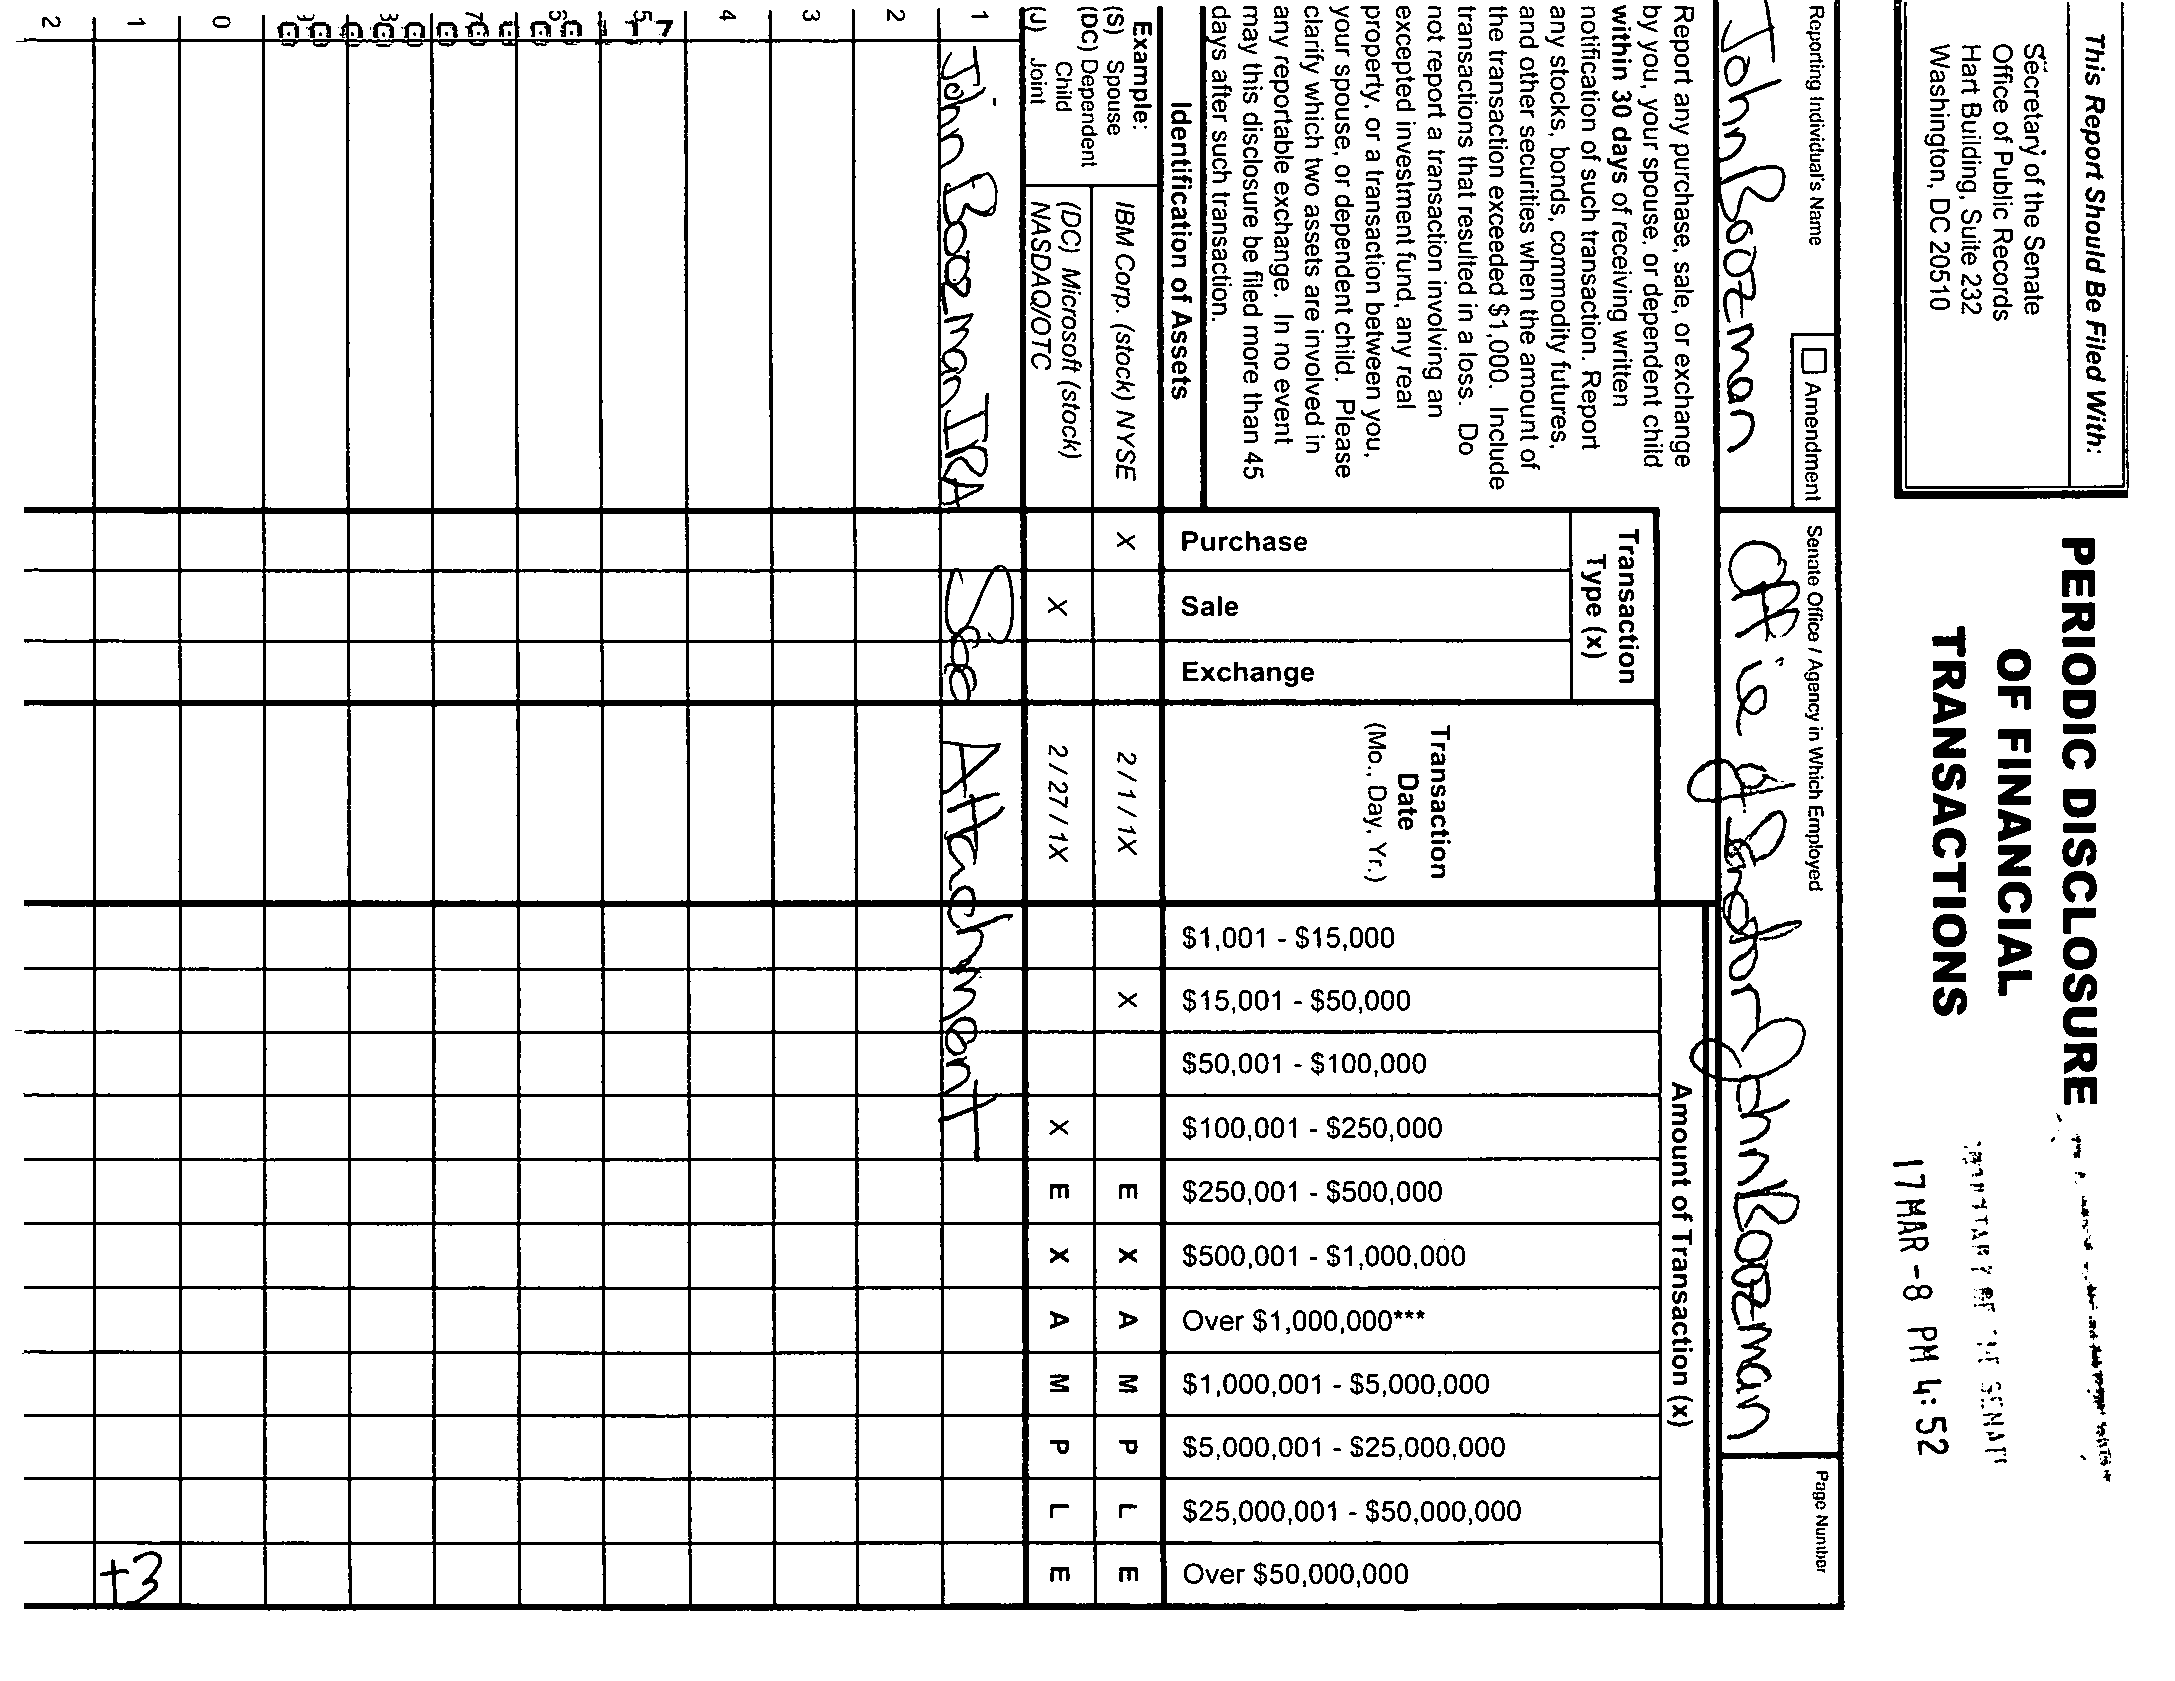 This Report Should Be Filed With:
Secretary of the Senate
Office of Public Records
Hart Building, Suite 232
Washington, DC 20510
PERIODIC DISCLOSURE
OF FINANCIAL
TRANSACTIONS
SENATE
17 MAR -8 PM 4:52
Reporting Individual's Name
Amendment
Senate Office / Agency in Which Employed
Page Number
John Boozman
Office of Senator John Boozman
Report any purchase, sale, or exchange
by you, your spouse, or dependent child
within 30 days of receiving written
notification of such transaction. Report
any stocks, bonds, commodity futures,
and other securities when the amount of
the transaction exceeded $1,000. Include
transactions that resulted in a loss. Do
not report a transaction involving an
excepted investment fund, any real
property, or a transaction between you,
your spouse, or dependent child. Please
clarify which two assets are involved in
any reportable exchange. In no event
may this disclosure be filed more than 45
days after such transaction.
Identification of Assets
Transaction
Type (x)
Purchase
Sale
Exchange
Transaction
Date
(Mo., Day, Yr.)
Amount of Transaction (x)
$1,001 - $15,000
$15,001 - $50,000
$50,001 - $100,000
$100,001 - $250,000
$250,001 - $500,000
$500,001 - $1,000,000
Over $1,000,000***
$1,000,001 - $5,000,000
$5,000,001 - $25,000,000
$25,000,001 - $50,000,000
Over $50,000,000
Example:
(S) Spouse
(DC) Dependent
Child
(J) Joint
IBM Corp. (stock) NYSE X 2 / 1 / 1X X E X A M P L E
(DC) Microsoft (stock)
NASDAQ/OTC X 2 / 27 / 1X X E X A M P L E
1 John Boozman IRA See Attachment
2
3
4
5
6
7
8
9
0
1 +3
2